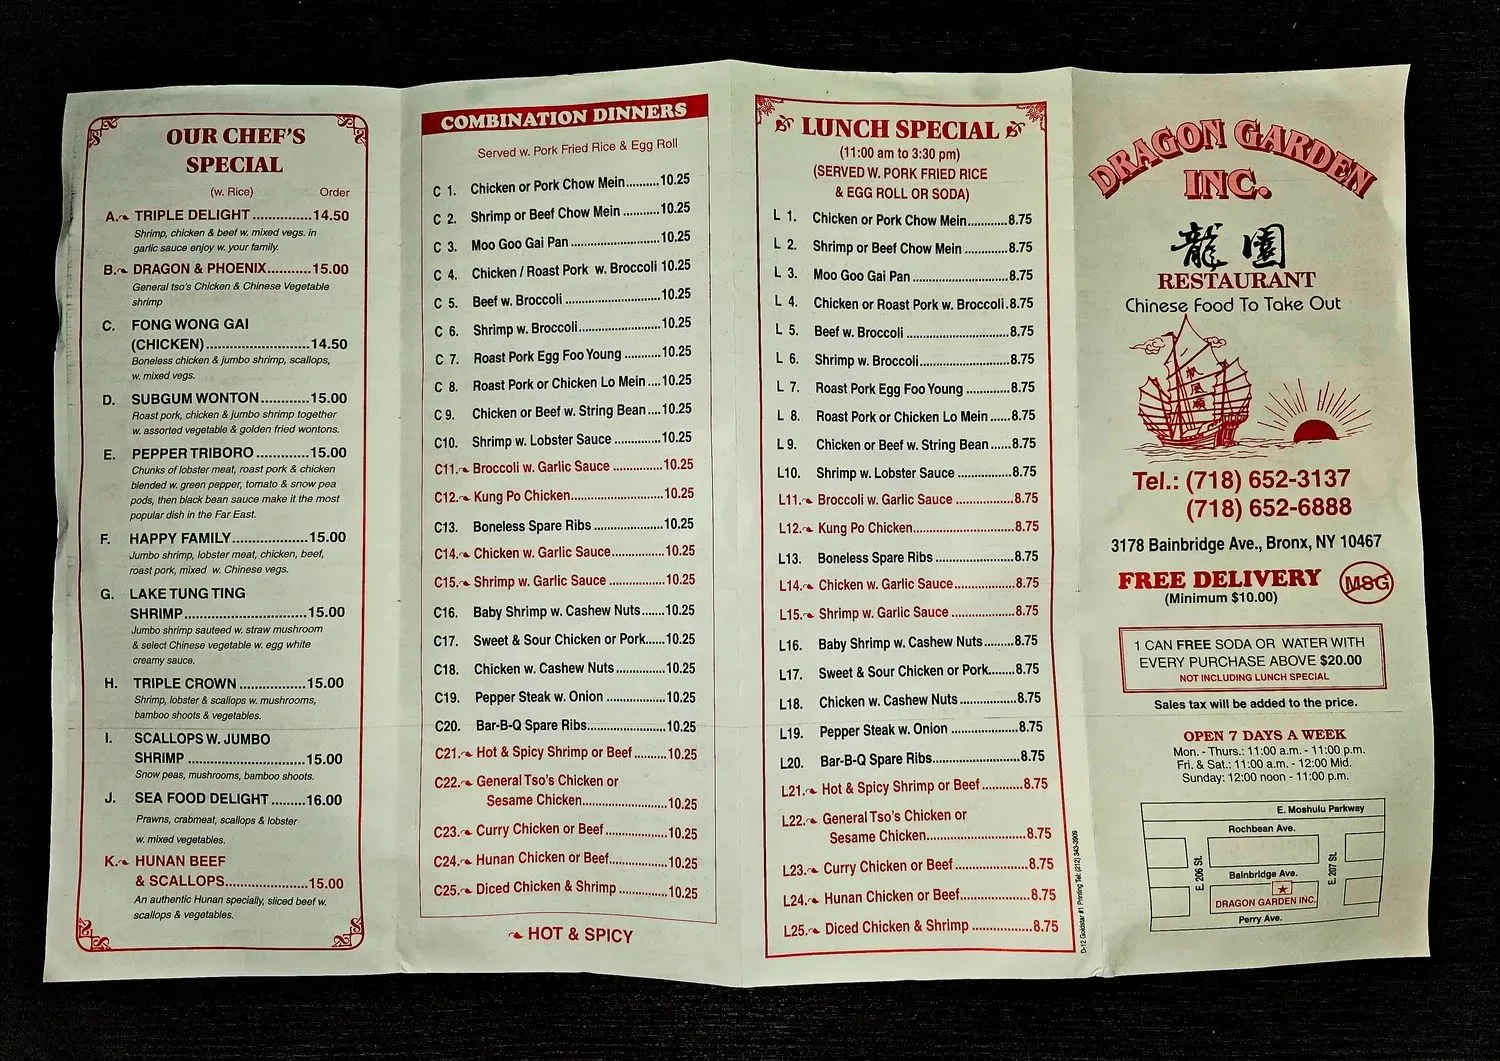 OUR CHEF'S
SPECIAL
(w. Rice) Order
A. TRIPLE DELIGHT ..............14.50
Shrimp, chicken & beef w. mixed vegs. in
garlic sauce enjoy w. your family.
B. DRAGON & PHOENIX...........15.00
General tso's Chicken & Chinese Vegetable
shrimp
C. FONG WONG GAI
(CHICKEN).........................14.50
Boneless chicken & jumbo shrimp, scallops,
w. mixed vegs.
D. SUBGUM WONTON............15.00
Roast pork, chicken & jumbo shrimp together
w. assorted vegetable & golden fried wontons.
E. PEPPER TRIBORO .............15.00
Chunks of lobster meat, roast pork & chicken
blended w. green pepper, tomato & snow pea
pods, then black bean sauce make it the most
popular dish in the Far East.
F. HAPPY FAMILY..................15.00
Jumbo shrimp, lobster meat, chicken, beef,
roast pork, mixed w. Chinese vegs.
G. LAKE TUNG TING
SHRIMP..............................15.00
Jumbo shrimp sauteed w. straw mushroom
& select Chinese vegetable w. egg white
creamy sauce.
H. TRIPLE CROWN ................15.00
Shrimp, lobster & scallops w. mushrooms,
bamboo shoots & vegetables.
I. SCALLOPS W. JUMBO
SHRIMP .............................15.00
Snow peas, mushrooms, bamboo shoots.
J. SEA FOOD DELIGHT ........16.00
Prawns, crabmeat, scallops & lobster
w. mixed vegetables.
K. HUNAN BEEF
& SCALLOPS....................15.00
An authentic Hunan specially, sliced beef w.
scallops & vegetables.
COMBINATION DINNERS
Served w. Pork Fried Rice & Egg Roll
C 1. Chicken or Pork Chow Mein..........10.25
C 2. Shrimp or Beef Chow Mein ...........10.25
C 3. Moo Goo Gai Pan ...........................10.25
C 4. Chicken / Roast Pork w. Broccoli 10.25
C 5. Beef w. Broccoli .............................10.25
C 6. Shrimp w. Broccoli.........................10.25
C 7. Roast Pork Egg Foo Young ...........10.25
C 8. Roast Pork or Chicken Lo Mein ....10.25
C 9. Chicken or Beef w. String Bean ....10.25
C10. Shrimp w. Lobster Sauce ...............10.25
C11. Broccoli w. Garlic Sauce ...............10.25
C12. Kung Po Chicken............................10.25
C13. Boneless Spare Ribs ......................10.25
C14. Chicken w. Garlic Sauce.................10.25
C15. Shrimp w. Garlic Sauce ..................10.25
C16. Baby Shrimp w. Cashew Nuts.......10.25
C17. Sweet & Sour Chicken or Pork......10.25
C18. Chicken w. Cashew Nuts ...............10.25
C19. Pepper Steak w. Onion ..................10.25
C20. Bar-B-Q Spare Ribs........................10.25
C21. Hot & Spicy Shrimp or Beef..........10.25
C22. General Tso's Chicken or
Sesame Chicken..........................10.25
C23. Curry Chicken or Beef ...................10.25
C24. Hunan Chicken or Beef..................10.25
C25. Diced Chicken & Shrimp ...............10.25
HOT & SPICY
LUNCH SPECIAL
(11:00 am to 3:30 pm)
(SERVED W. PORK FRIED RICE
& EGG ROLL OR SODA)
L 1. Chicken or Pork Chow Mein............8.75
L 2. Shrimp or Beef Chow Mein .............8.75
L 3. Moo Goo Gai Pan .............................8.75
L 4. Chicken or Roast Pork w. Broccoli.8.75
L 5. Beef w. Broccoli ...............................8.75
L 6. Shrimp w. Broccoli...........................8.75
L 7. Roast Pork Egg Foo Young .............8.75
L 8. Roast Pork or Chicken Lo Mein ......8.75
L 9. Chicken or Beef w. String Bean ......8.75
L10. Shrimp w. Lobster Sauce .................8.75
L11. Broccoli w. Garlic Sauce .................8.75
L12. Kung Po Chicken..............................8.75
L13. Boneless Spare Ribs ........................8.75
L14. Chicken w. Garlic Sauce..................8.75
L15. Shrimp w. Garlic Sauce ...................8.75
L16. Baby Shrimp w. Cashew Nuts.........8.75
L17. Sweet & Sour Chicken or Pork........8.75
L18. Chicken w. Cashew Nuts .................8.75
L19. Pepper Steak w. Onion ....................8.75
L20. Bar-B-Q Spare Ribs..........................8.75
L21. Hot & Spicy Shrimp or Beef ............8.75
L22. General Tso's Chicken or
Sesame Chicken............................8.75
L23. Curry Chicken or Beef .....................8.75
L24. Hunan Chicken or Beef....................8.75
L25. Diced Chicken & Shrimp .................8.75
D-12 Goldstar #1 Printing Tel: (212) 343-3909
DRAGON GARDEN
INC.
龍園
RESTAURANT
Chinese Food To Take Out
Tel.: (718) 652-3137
(718) 652-6888
3178 Bainbridge Ave., Bronx, NY 10467
FREE DELIVERY MSG
(Minimum $10.00)
1 CAN FREE SODA OR WATER WITH
EVERY PURCHASE ABOVE $20.00
NOT INCLUDING LUNCH SPECIAL
Sales tax will be added to the price.
OPEN 7 DAYS A WEEK
Mon. - Thurs.: 11:00 a.m. - 11:00 p.m.
Fri. & Sat.: 11:00 a.m. - 12:00 Mid.
Sunday: 12:00 noon - 11:00 p.m.
E. Moshulu Parkway
Rochbean Ave.
E. 206 St.
E. 207 St.
Bainbridge Ave.
DRAGON GARDEN INC.
Perry Ave.